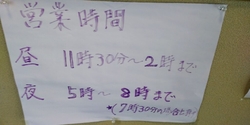 営業時間
昼 11時30分〜2時まで
夜 5時〜8時まで
(7時30分